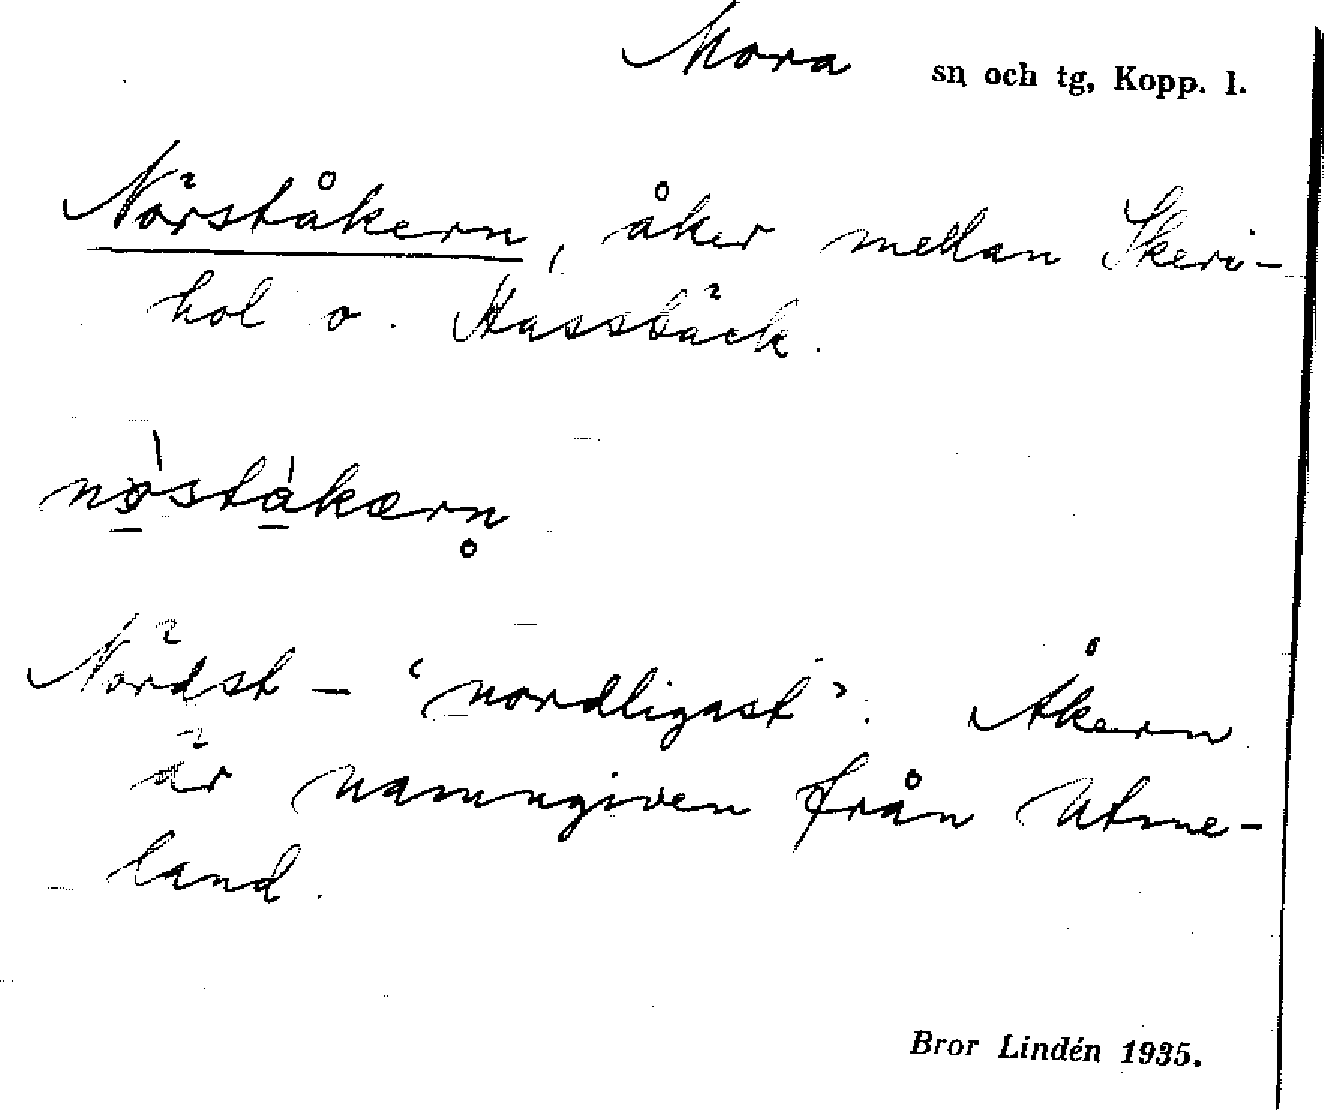 Mora sn och tg, Kopp. l.
Nörståkern, åker mellan Skeri-
hol o. Hassbäck.
nø̱̀stà̱kærn̥
Nördst- "nordligast". Åkern
är namngiven från Utme-
land.
Bror Lindén 1935.